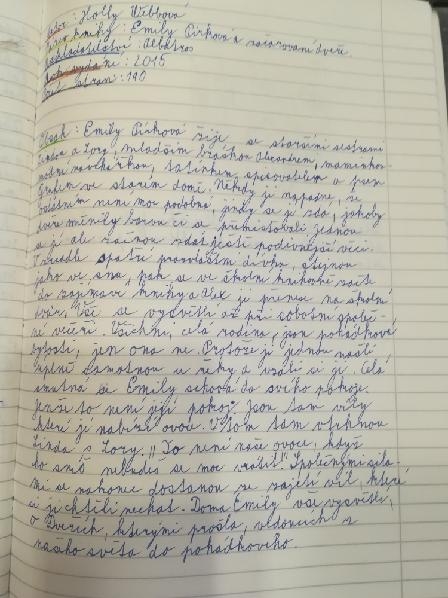 Autor: Holly Webbová
Název knihy: Emily Pírková a začarované dveře
Nakladatelství: Albatros
Rok vydání: 2015
Počet stran: 190
Obsah: Emily Pírková žije se staršími sestrami
a Lory, mladším bráškou, maminkou
módní návrhářkou, tatínkem, spisovatelem a psem
ve starém domě. Někdy jí napadne, že
ostatním není moc podobná, jindy se jí zdá, jakoby
dveře měnily barvu či se přemisťovaly. Jednou
se jí ale začnou zdát ještě podivnější věci.
V zrcadle spatří prazvláštní dívku, stejnou
jako ve snu, pak se ve školní knihovně začte
do zajímavé knihy a je přenese na školní
dvůr. Vše se vysvětlí až při sobotní společ-
né večeři. Všichni, celá rodina, jsou pohádkové
bytosti, jen ona ne. Protože ji jednou našli
úplně samotnou u řeky a vzali si ji. Celá
smutná se Emily schová do svého pokoje.
Jenže to není její pokoj. Jsou tam víly
které jí nabízí ovoce. V tom tam vtrhnou
a Lory. „To není naše ovoce, když
do sníš nebudeš se moci vrátit." Společnými sila-
mi se nakonec dostanou ze zajetí víl, které
si je chtěli nechat. Doma Emily vše vysvětlí,
o dveřích, kterými prošla, vedoucích z
našeho světa do pohádkového.